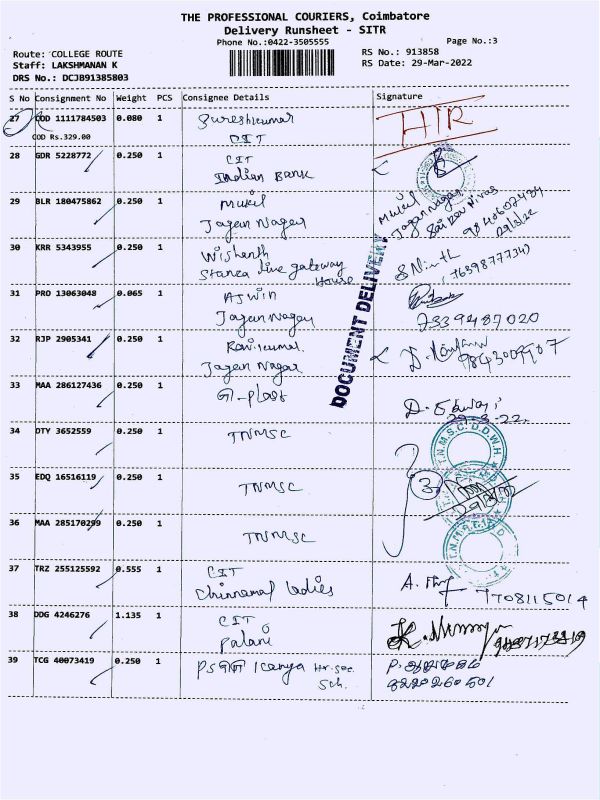 THE PROFESSIONAL COURIERS, Coimbatore
Delivery Runsheet - SITR
Phone No.:0422-3505555
Page No.:3
Route: COLLEGE ROUTE
RS No.: 913858
Staff: LAKSHMANAN K
RS Date: 29-Mar-2022
DRS No.: DCJB91385803
S No Consignment No Weight PCS Consignee Details Signature
27 COD 1111784503 0.080 1 Sureshkumar
COD Rs.329.00 CIT
28 GDR 5228772 0.250 1 CIT
Indian Bank
29 BLR 180475862 0.250 1 Mukil Mukil
Jagan Nagar Jagan Nagar
29/3/22
30 KRR 5343955 0.250 1
Stanza live gateway
House
(7639877734)
31 PRO 13063048 0.065 1 Ajwin
Jagan Nagar 7339487020
DOCUMENT DELIVERY
32 RJP 2905341 0.250 1 Ravikumar
Jagan Nagar
33 MAA 286127436 0.250 1 GI-Plast
29-3-22
34 DTY 3652559 0.250 1 TNMSC
T.N.M.S.C. D.D.W.H
35 EDQ 16516119 0.250 1 TNMSC 3
36 MAA 285170299 0.250 1 TNMSC
37 TRZ 255125592 0.555 1 CIT
Chinnamal Ladies 7708115014
38 DDG 4246276 1.135 1 CIT
Palani
39 TCG 40073419 0.250 1 Kanya Hr. Sec.
Sch. 8220260501